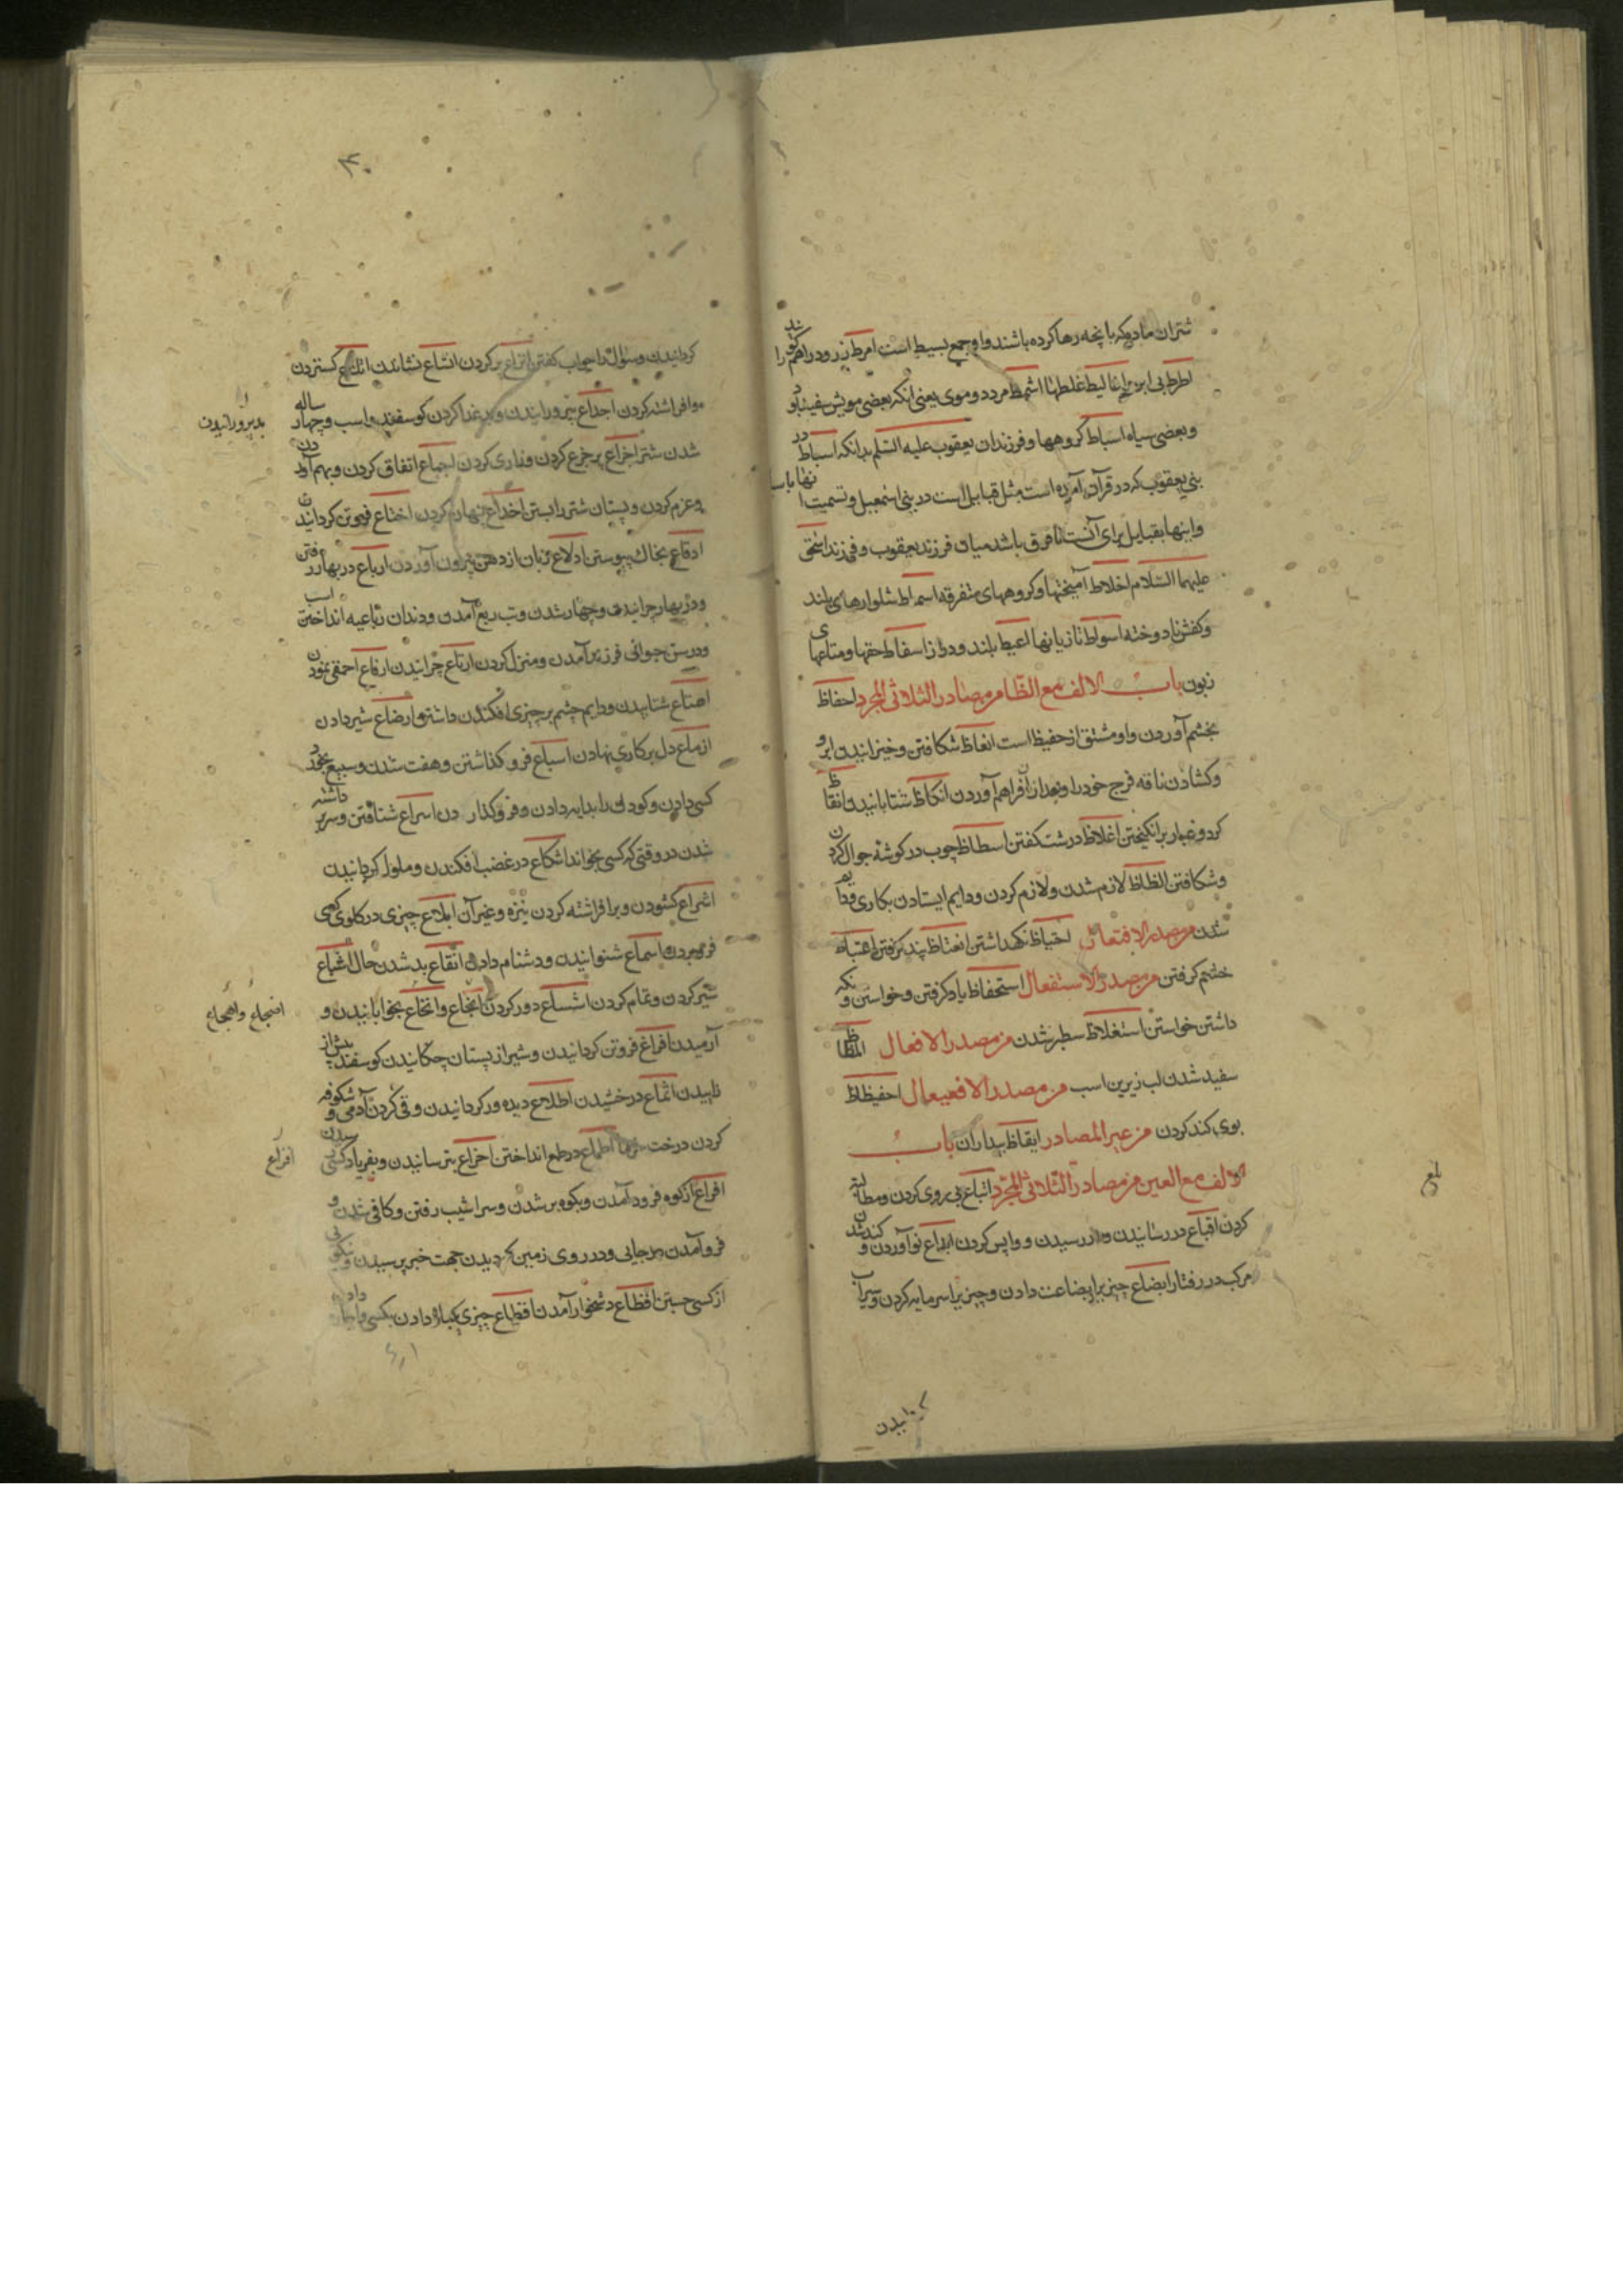 شتران ماده که با بچه رها کرده باشند و او جمع بسیط است امرط زرود راهم را گویند
اطرط بی ابرو اغالیط غلطها اشمط مرد دوموی یعنی آنکه بعضی مویش سفید بود
و بعضی سیاه اسباط گروهها و فرزندان یعقوب علیه السلم بدانکه اسباط در
بنی یعقوب که در قرآن آمده است مثل قبایل است در بنی اسمعیل و تسمیت
و اینها بقبایل برای آنست تا فرق باشد میان فرزند یعقوب و فرزند اسحق
علیهما السلام اخلاط آمیختها و گروههای متفرقه اسماط شلوارهای بلند
و کفش نادوخته اسواط تازیانها اعیط بلند و دراز اسفاط حقها و متاعهای
زبون باب الالف مع الظا من مصادر الثلاثی المجرد احفاظ
بخشم آوردن و او مشتق از حفیظ است انعاظ شکافتن و خیزانیدن ابرو
و گشادن ناقه فرج خود را و بعد از آن فراهم آوردن انکاظ شتابانیدن انقاظ
گرد و غبار برانگیختن اغلاظ درشت گفتن اسطاظ چوب در گوشهٔ جوال کردن
و شکافتن الظاظ لازم شدن و لازم کردن و دایم ایستادن بکاری
شدن من مصدر الافتعال احتیاظ نگهداشتن اتعتاظ پند گرفتن اغتیاظ
خشم گرفتن من مصدر الاستفعال استحفاظ یاد گرفتن و خواستن و نگه
داشتن خواستن استغلاظ سطبر شدن من مصدر الافعال المظاظ
سفید شدن لب زیرین اسب من مصدر الافعیعال احفیظاظ
بوی گند کردن من غیر المصادر ایقاظ بیداران باب
الالف مع العین من مصادر الثلاثی المجرد اتباع پی روی کردن و مطالبه
کردن اتباع در رسانیدن و در رسیدن و واپس کردن ابداع نو آوردن و کند شدن
مرکب در رفتار ابضاع چیزیرا بضاعت دادن و چیزیرا سرمایه کردن و سیراب
بلغ
گردانیدن
۳۰
گردانیدن و سؤال را جواب گفتن اتراع پر کردن انشاع نشاندن گستردن
موافراشته کردن اجداع بپرورانیدن و بد غذا کردن گوسفند و اسب و چهار ساله
شدن شتر اجزاع بر جزع کردن و زاری کردن اجماع اتفاق کردن و بهم آوردن
و عزم کردن و پستان شتر را بستن اخداع نهان کردن اختاع فروتن گردانیدن
ادقاع بخاک پیوستن ادلاع زبان از دهن بیرون آوردن ارباع در بهار رفتن
و در بهار چرانیدن و چهار شدن و تب ربع آمدن و دندان رباعیه انداختن اسب
و در سن جوانی فرزند آمدن و منزل کردن ارتاع چرانیدن ارقاع احمقی نمودن
اهتاع شتابیدن و دایم چشم بر چیزی افگندن داشتن ارضاع شیر دادن
ازماع دل بر کاری نهادن اسباع فرو گذاشتن و هفت شدن و سبع بخورد
کسی دادن و کودک را بدایه دادن و فرو گذاردن اسراع شتافتن و سر بر داشته
شدن در وقتی که کسی بخواند اشکاع در غضب افگندن و ملول گردانیدن
اشراع گشودن و برافراشته کردن نیزه و غیر آن ابلاع چیزی در گلوی کسی
فرو بردن اسماع شنوانیدن و دشنام دادن اتقاع بد شدن حال اشباع
سیر کردن و تمام کردن اشساع دور کردن انجاع و انخاع بخوابانیدن و
آرمیدن اقراع فروتن گردانیدن و شیر از پستان چکانیدن گوسفند پیش از
زاییدن اثماع درخشیدن اطلاع دیده ور گردانیدن و قی کردن آدمی و شکوفه
کردن درخت خرما اطماع در طمع انداختن اخزاع بترسانیدن و بفریاد کسی رسیدن
افراع از کوه فرود آمدن و بکوه بر شدن و سراشیب رفتن و کافی شدن و
فرو آمدن در جایی و در روی زمین گردیدن جهت خبر پرسیدن و نیکویی
از کسی جستن افظاع دشخوار آمدن اقطاع چیزی یکباره دادن بکسی
بد پرورانیدن
انجاع واهجاع
افزاع